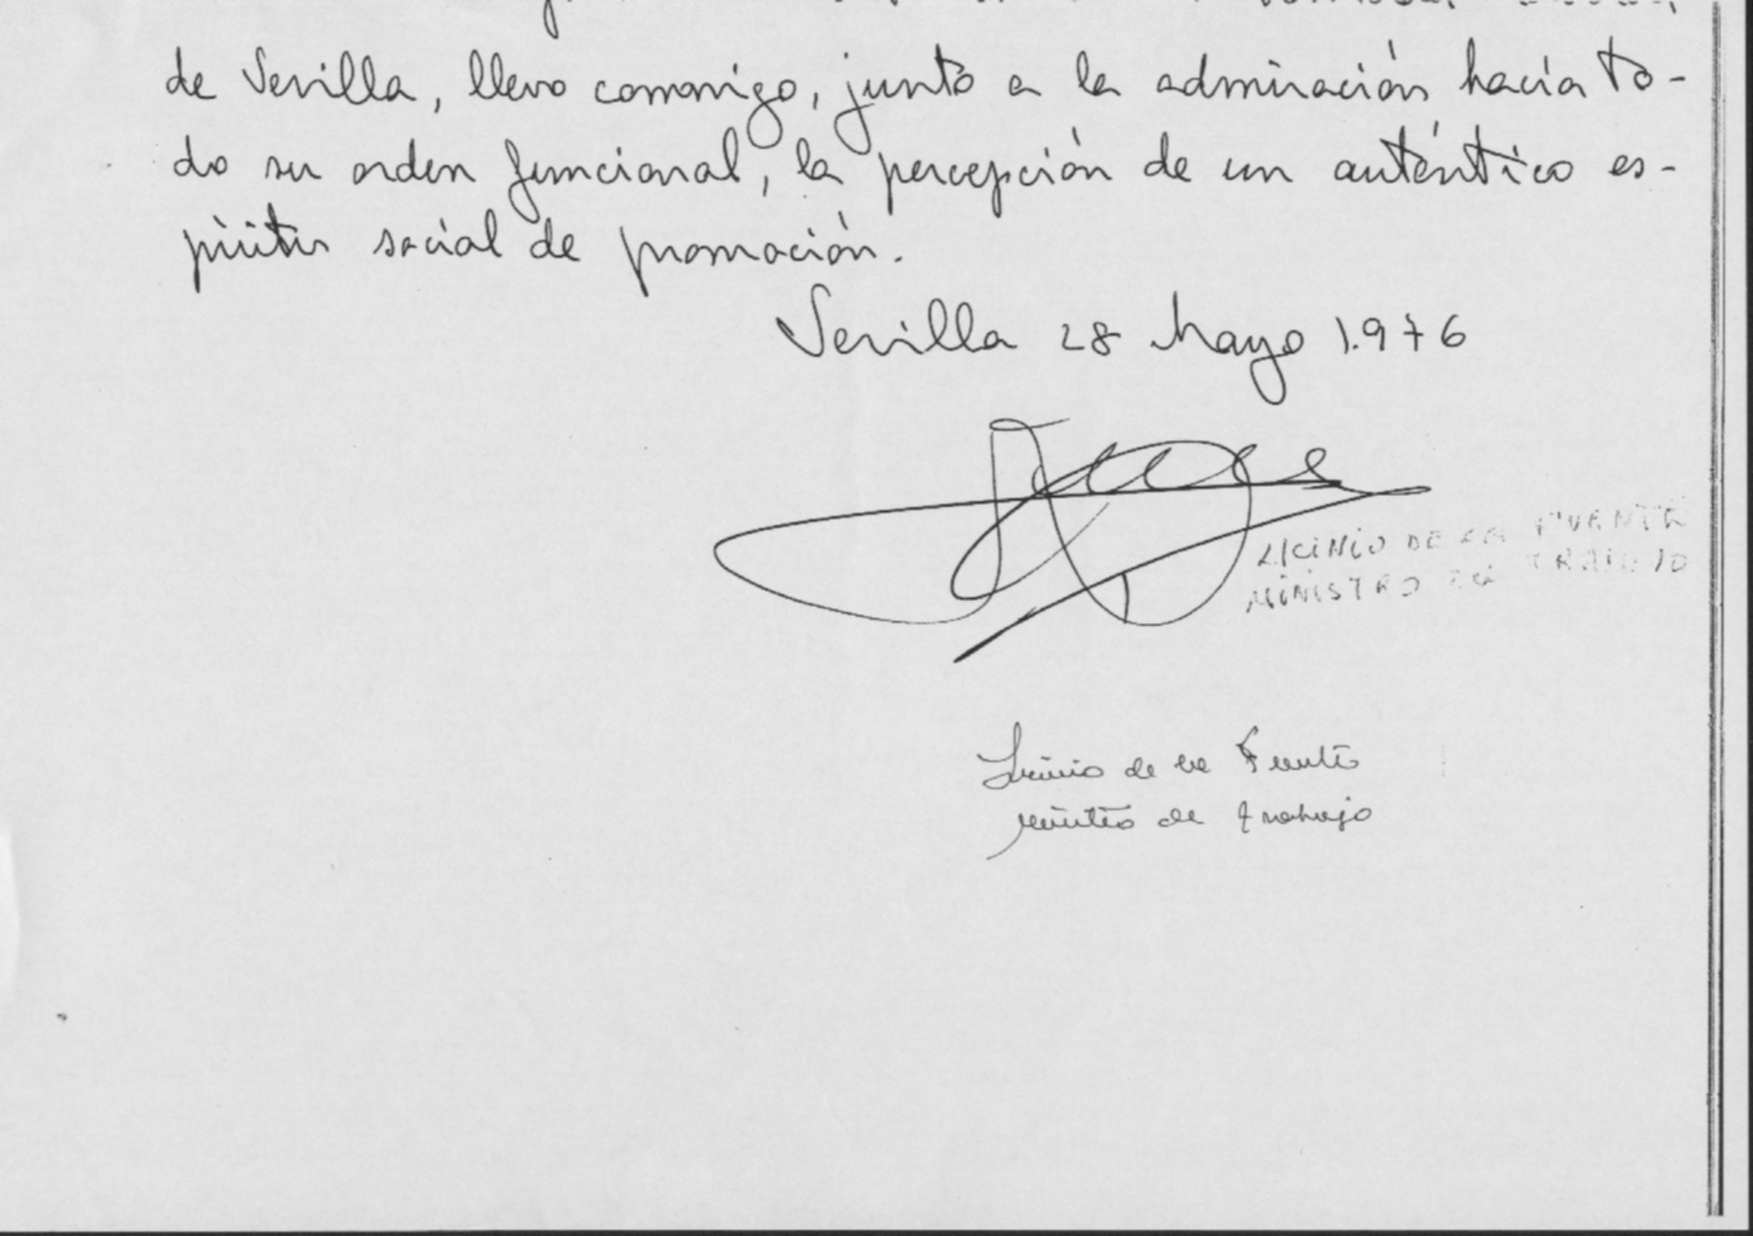 de Sevilla, llevo conmigo, junto a la admiración hacia to-
do su orden funcional, la percepción de un auténtico es-
píritu social de promoción.
Sevilla 28 Mayo 1.976
LICINIO DE LA FUENTE
MINISTRO DE TRABAJO
Licinio de la Fuente
Ministro de Trabajo